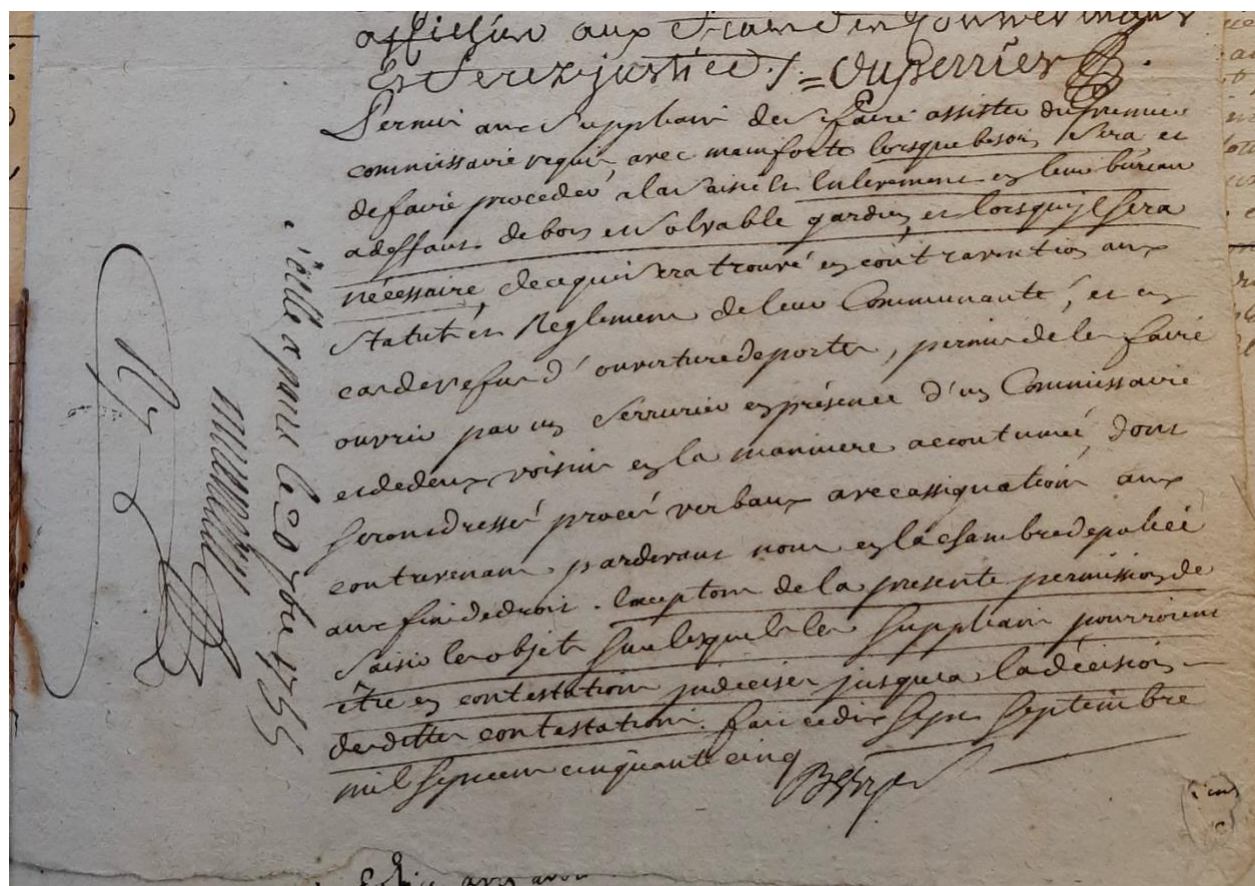 aux frais
Et ferez justice ./= Duperrier
Permis aux Supplians de se faire assister du premier
commissaire requis, avec mainforte lorsque besoin sera et
de faire proceder a la Saisie et Enlevement en leur bureau
a deffaut de bon et Solvable gardien, et lorsqu'il sera
nécessaire, de ce qui Sera trouvé en contravention aux
Statuts et Reglemens de leur Communauté, et en
cas de refus d'ouverture de portes, permis de les faire
ouvrir par un Serrurier en présence d'un Commissaire
et de deux voisins en la maniere accoutumée, dont
Seront dressés procés verbaux avec assignation aux
contrevenans pardevant nous en la chambre de police
aux fins de droit. Exceptons de la presente permission de
Saisir les objets Sur lesquels les Supplians pourroient
être en contestations judicises jusqu'a la décision
desdittes contestations. fait ce dix Sept Septembre
mil Sept cent cinquante cinq
Berryer
le 20 7bre 1755